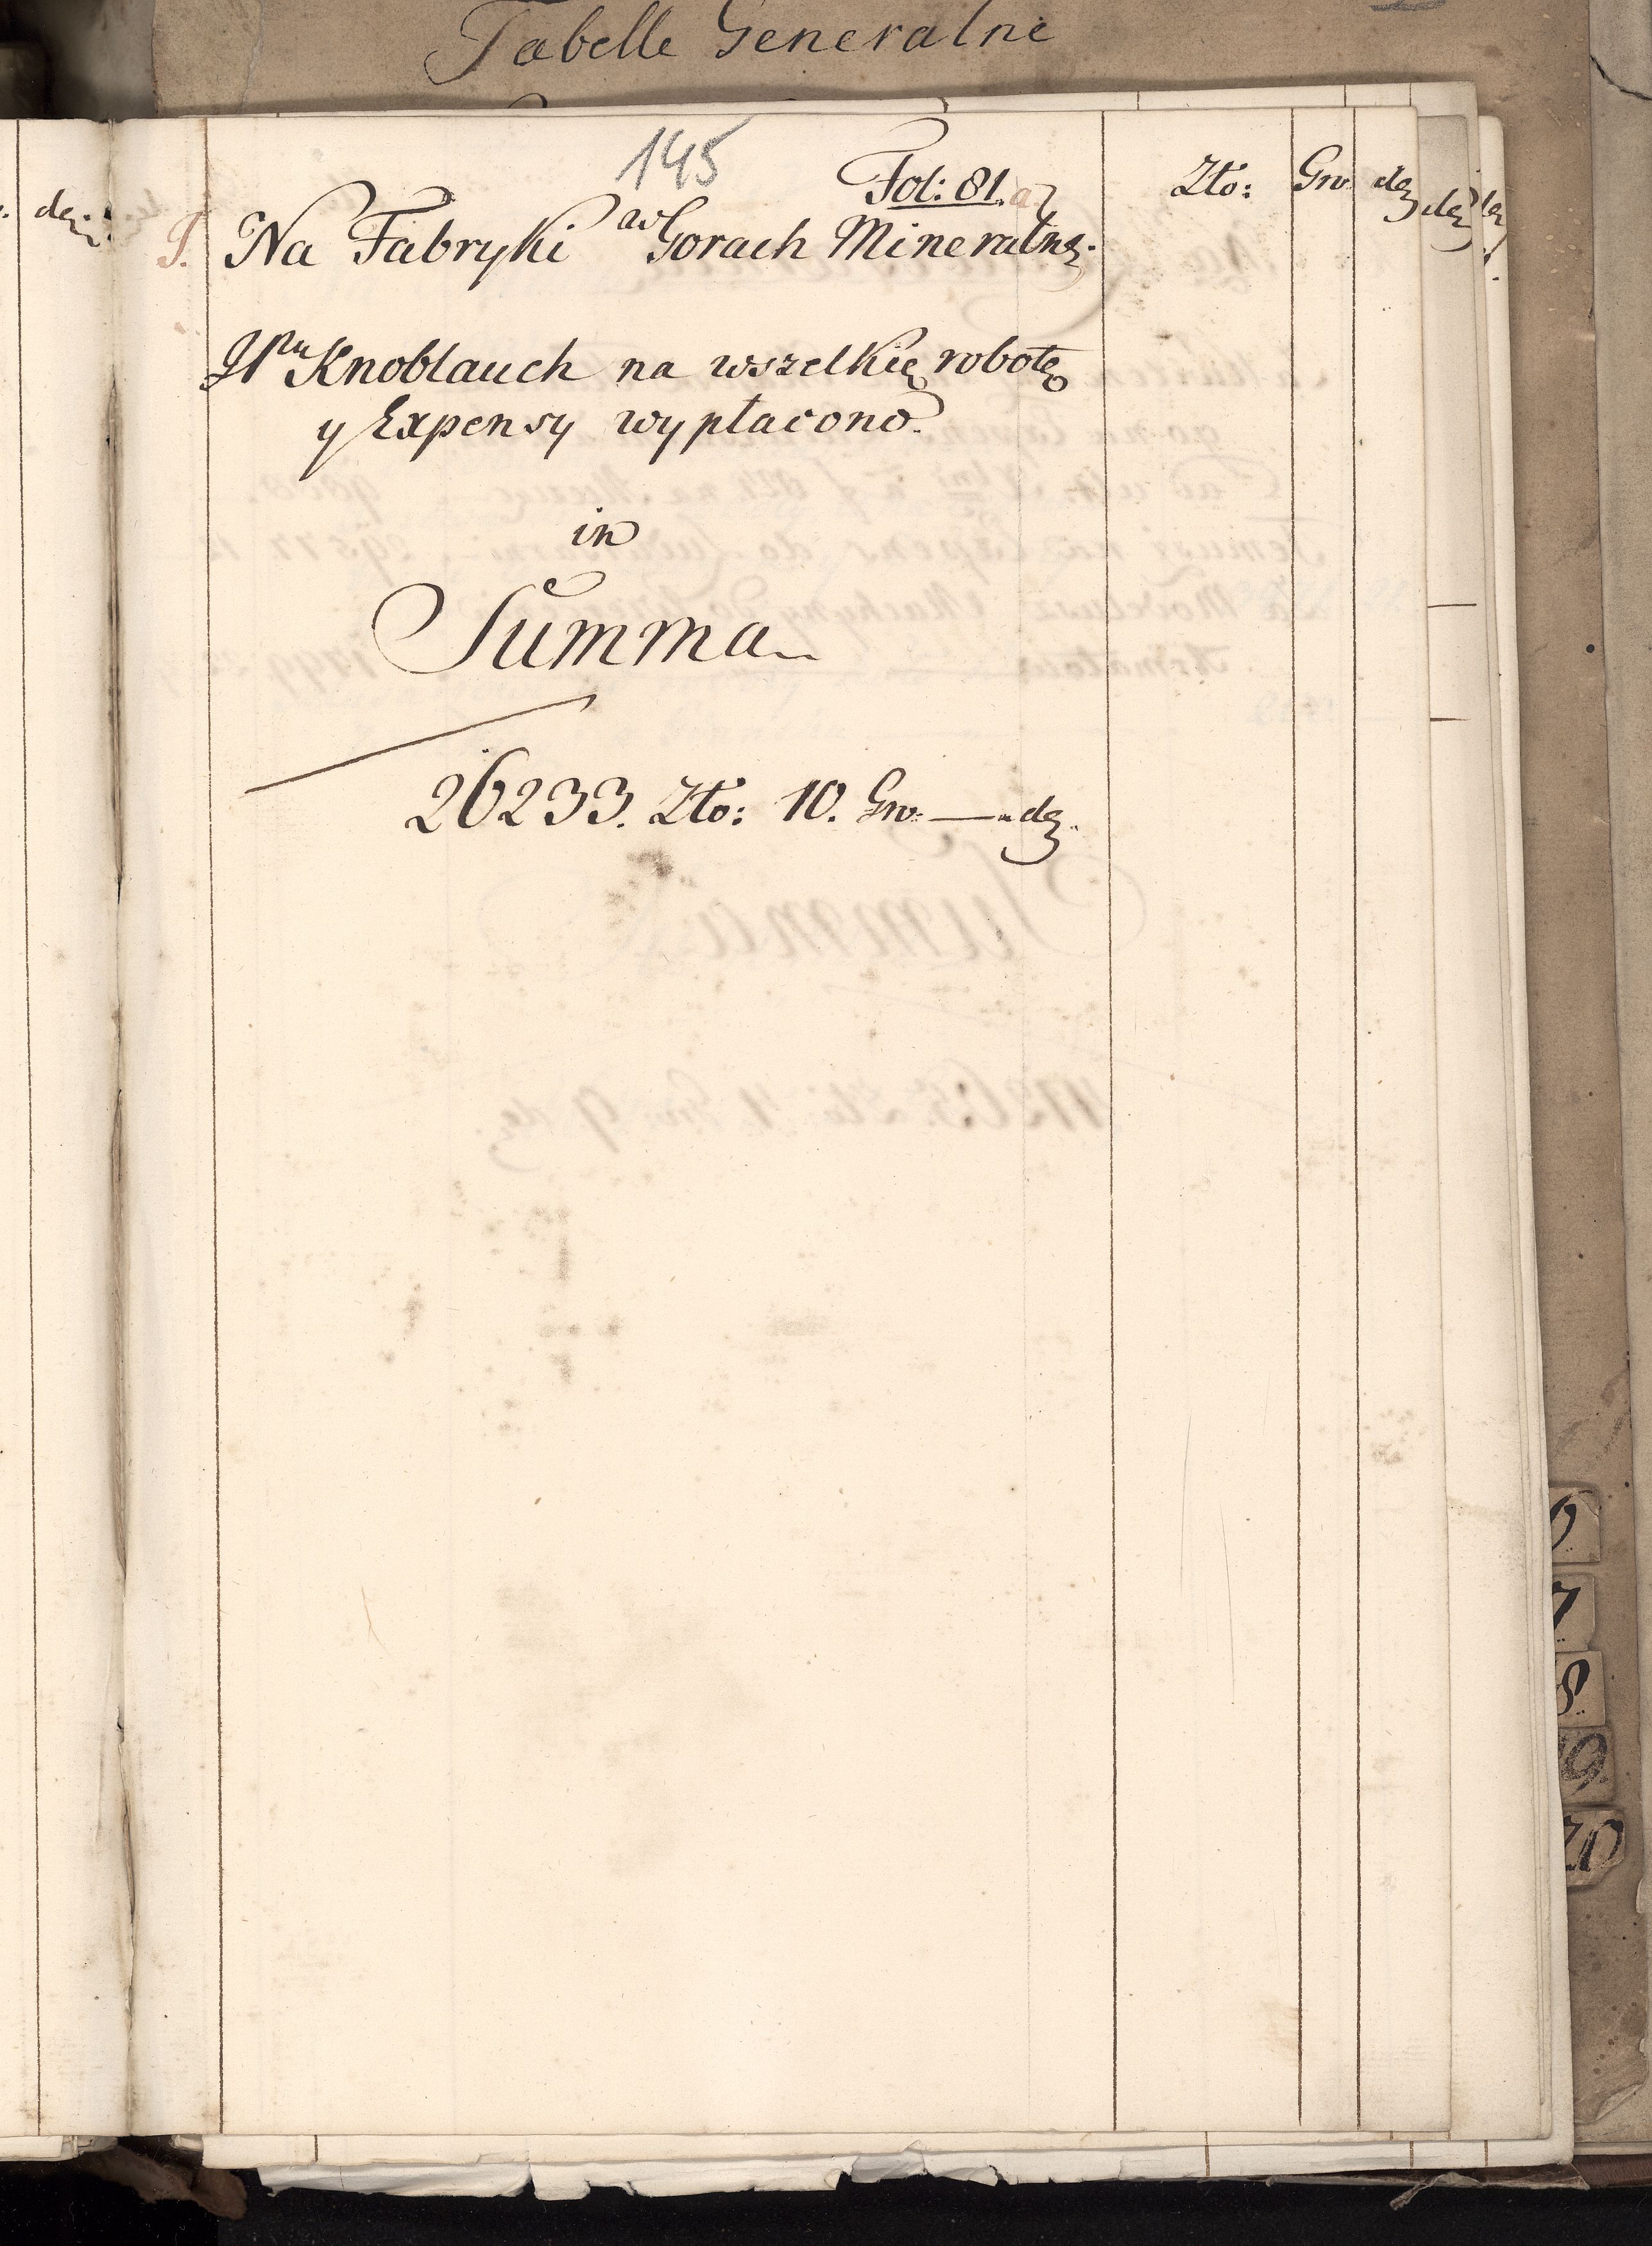 Tabelle Generalne
145
Fol: 81. a
Zło: Gro dez
Na Fabryki w Gorach Mineralnz.
JPnu Knoblauch na wszelkię robotę
y Expensy wypłacono.
in
Summa
26233. Zło: 10. Gro: — dez
dez.
dez
7.
8.
9.
20